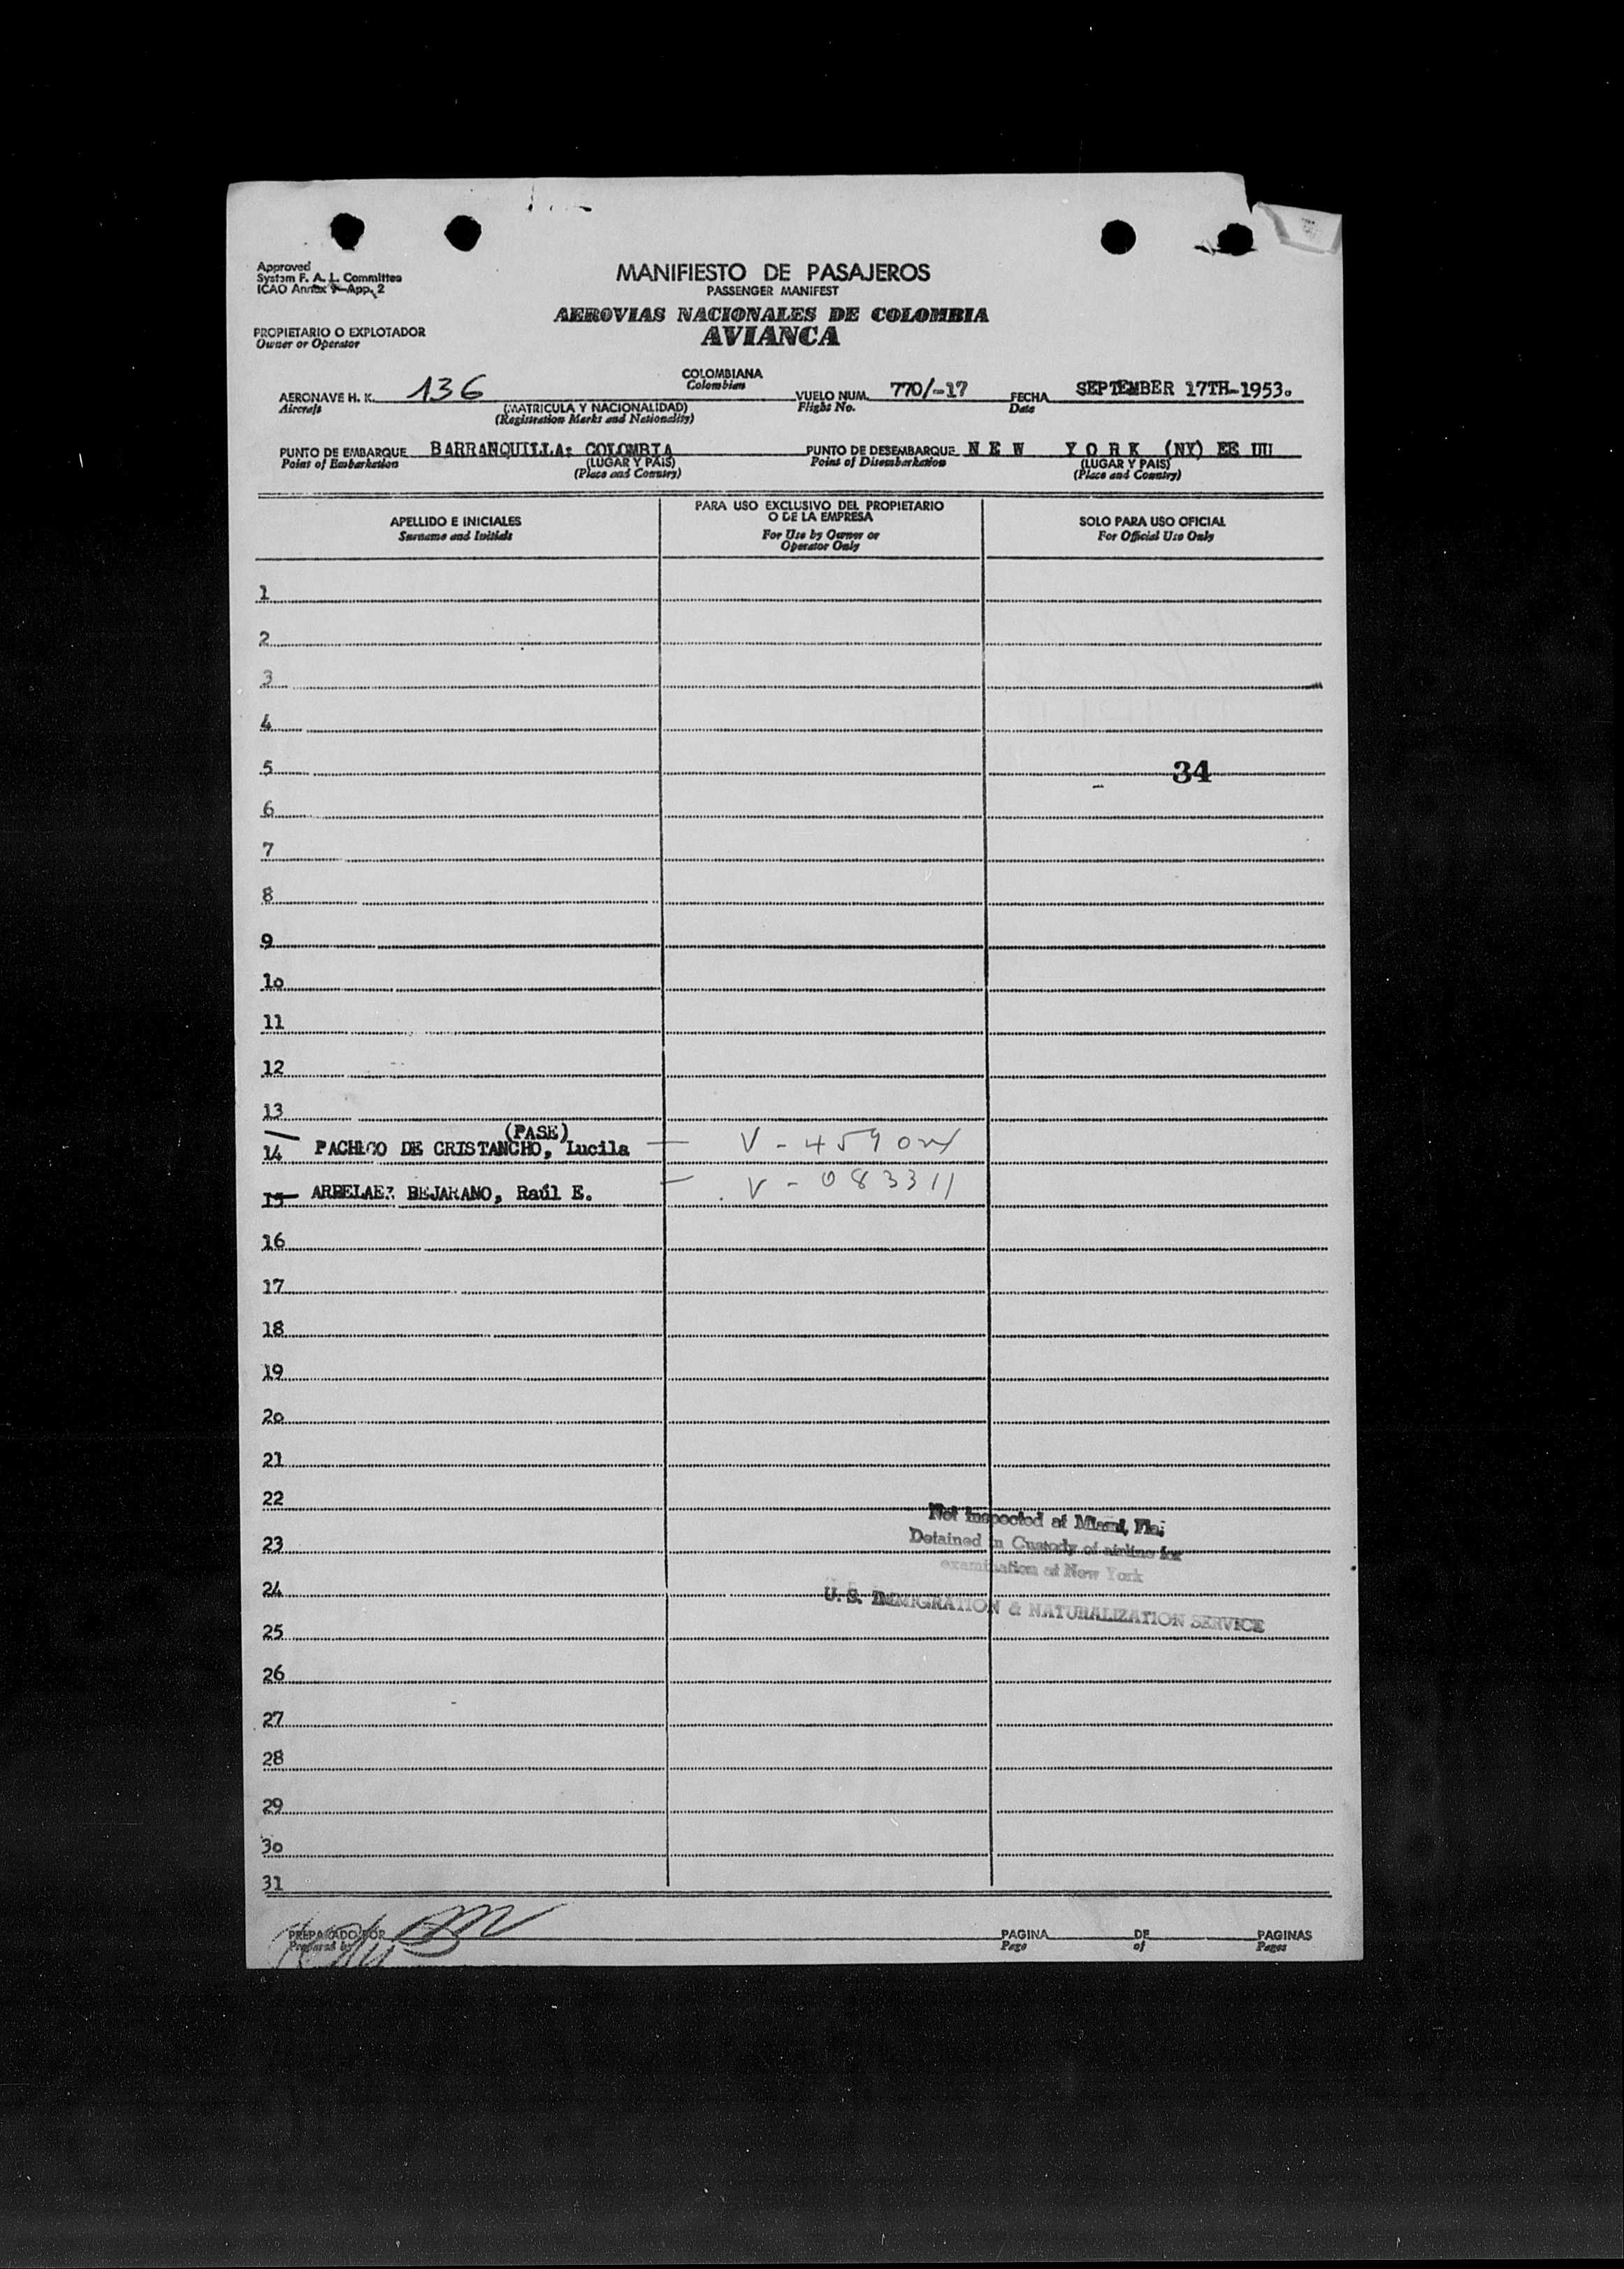 Approved
System F. A. L. Committee
ICAO Annex 9-App. 2
MANIFIESTO DE PASAJEROS
PASSENGER MANIFEST
AEROVIAS NACIONALES DE COLOMBIA
AVIANCA
PROPIETARIO O EXPLOTADOR
Owner or Operator
COLOMBIANA
Colombian
AERONAVE H. K. 136 VUELO NUM. 770/-17 FECHA SEPTEMBER 17TH-1953.
Aircraft (MATRICULA Y NACIONALIDAD) Flight No. Date
(Registration Marks and Nationality)
PUNTO DE EMBARQUE BARRANQUILLA: COLOMBIA PUNTO DE DESEMBARQUE N E W Y O R K (NY) EE UU
Point of Embarkation (LUGAR Y PAIS) Point of Disembarkation (LUGAR Y PAIS)
(Place and Country) (Place and Country)
APELLIDO E INICIALES
Surname and Initials
PARA USO EXCLUSIVO DEL PROPIETARIO
O DE LA EMPRESA
For Use by Owner or
Operator Only
SOLO PARA USO OFICIAL
For Official Use Only
1
2
3
4
5 34
6
7
8
9
10
11
12
13
(PASE)
14 PACHECO DE CRISTANCHO, Lucila
15 ARBELAEZ BEJARANO, Raúl E. V - 083311
16
17
18
19
20
21
22
Not Inspected at Miami, Fla;
23
Detained in Custody of airline for
examination at New York
24
U. S. IMMIGRATION & NATURALIZATION SERVICE
25
26
27
28
29
30
31
PREPARADO POR PAGINA DE PAGINAS
Prepared by Page of Pages